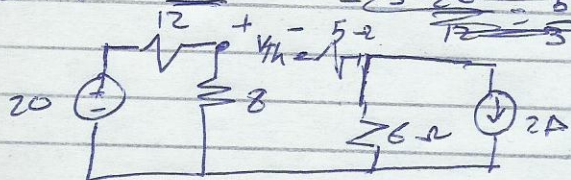 12 + Vth - 5Ω
20
8
6Ω
2A